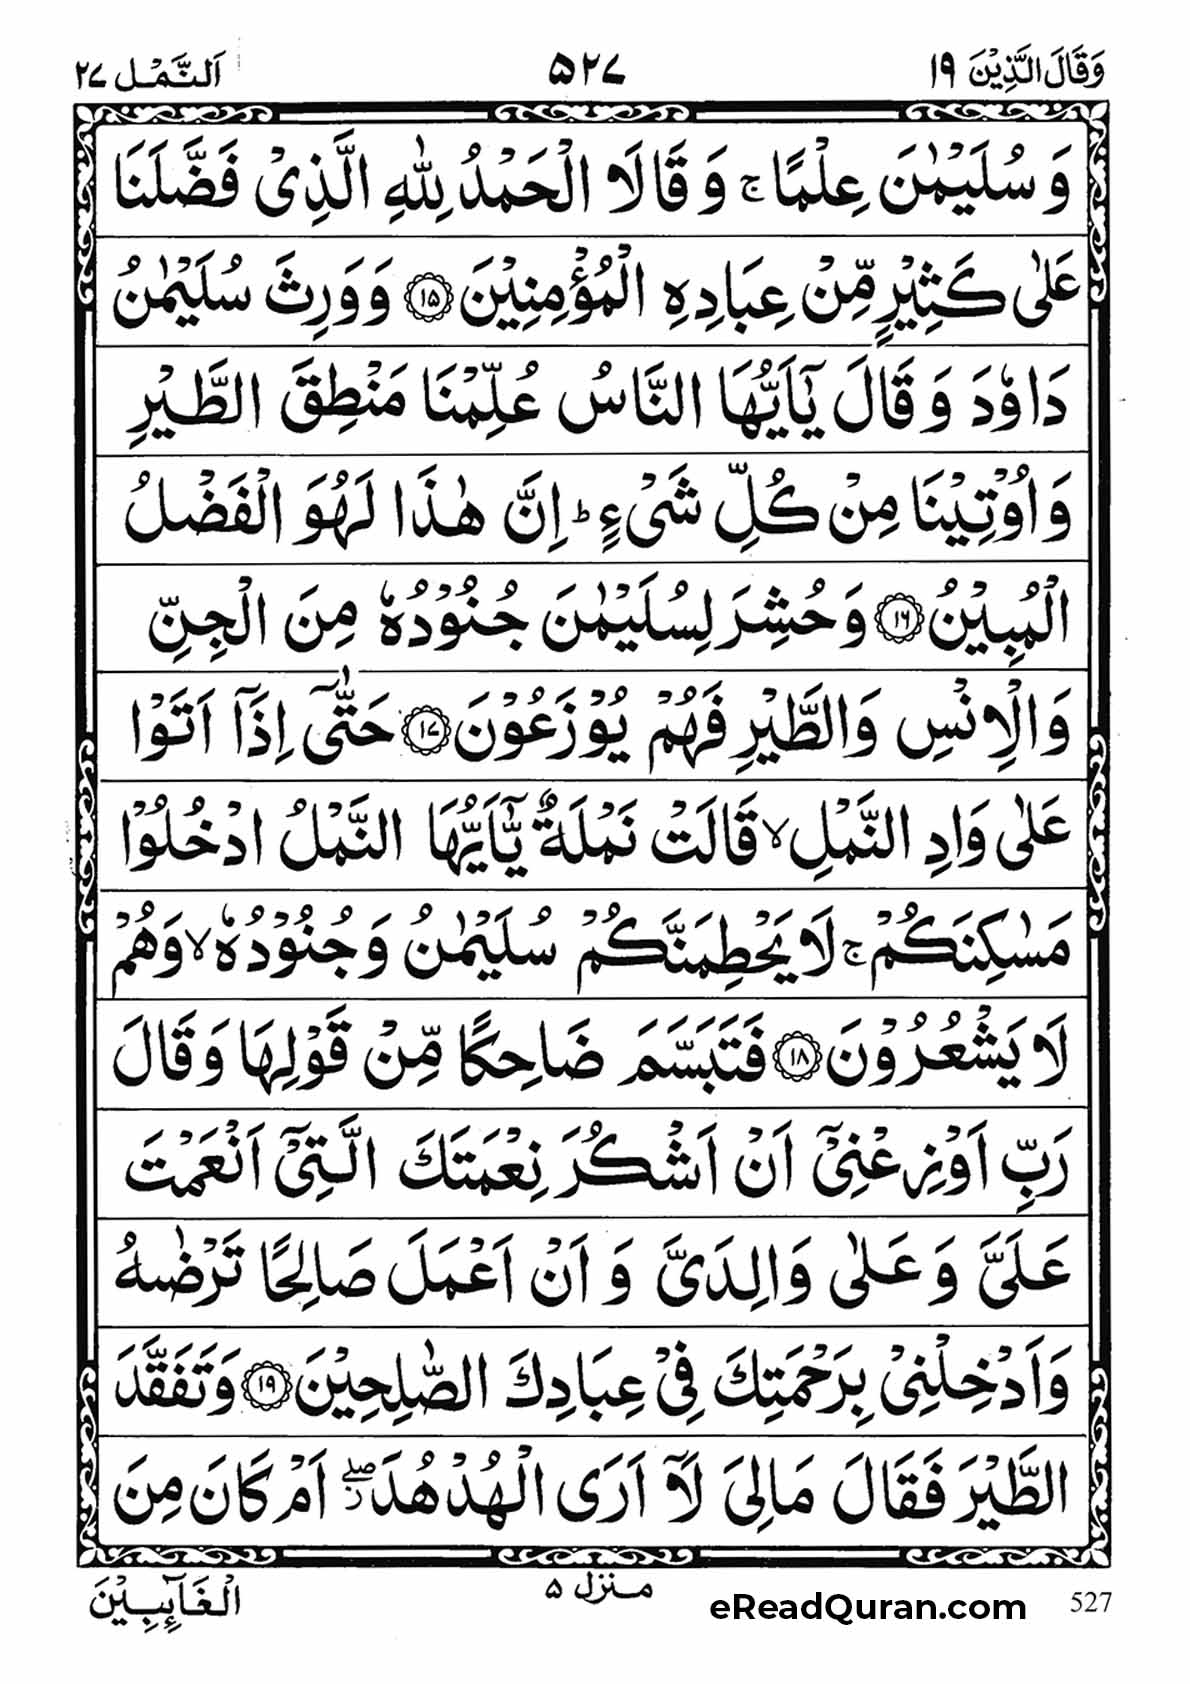 وَقَالَ الَّذِیْنَ ۱۹ ۵۲۷ اَلنَّمْل ۲۷
وَ سُلَیْمٰنَ عِلْمًا ۚ وَ قَالَا الْحَمْدُ لِلّٰهِ الَّذِیْ فَضَّلَنَا
عَلٰی كَثِیْرٍ مِّنْ عِبَادِهِ الْمُؤْمِنِیْنَ ﴿۱۵﴾ وَ وَرِثَ سُلَیْمٰنُ
دَاوٗدَ وَ قَالَ یٰۤاَیُّهَا النَّاسُ عُلِّمْنَا مَنْطِقَ الطَّیْرِ
وَ اُوْتِیْنَا مِنْ كُلِّ شَیْءٍ ؕ اِنَّ هٰذَا لَهُوَ الْفَضْلُ
الْمُبِیْنُ ﴿۱۶﴾ وَ حُشِرَ لِسُلَیْمٰنَ جُنُوْدُهٗ مِنَ الْجِنِّ
وَ الْاِنْسِ وَ الطَّیْرِ فَهُمْ یُوْزَعُوْنَ ﴿۱۷﴾ حَتّٰۤی اِذَاۤ اَتَوْا
عَلٰی وَادِ النَّمْلِ ۙ قَالَتْ نَمْلَةٌ یّٰۤاَیُّهَا النَّمْلُ ادْخُلُوْا
مَسٰكِنَكُمْ ۚ لَا یَحْطِمَنَّكُمْ سُلَیْمٰنُ وَ جُنُوْدُهٗ ۙ وَ هُمْ
لَا یَشْعُرُوْنَ ﴿۱۸﴾ فَتَبَسَّمَ ضَاحِكًا مِّنْ قَوْلِهَا وَ قَالَ
رَبِّ اَوْزِعْنِیْۤ اَنْ اَشْكُرَ نِعْمَتَكَ الَّتِیْۤ اَنْعَمْتَ
عَلَیَّ وَ عَلٰی وَالِدَیَّ وَ اَنْ اَعْمَلَ صَالِحًا تَرْضٰىهُ
وَ اَدْخِلْنِیْ بِرَحْمَتِكَ فِیْ عِبَادِكَ الصّٰلِحِیْنَ ﴿۱۹﴾ وَ تَفَقَّدَ
الطَّیْرَ فَقَالَ مَا لِیَ لَاۤ اَرَی الْهُدْهُدَ ۖ اَمْ كَانَ مِنَ
الْغَآئِبِیْنَ منزل ۵ eReadQuran.com 527